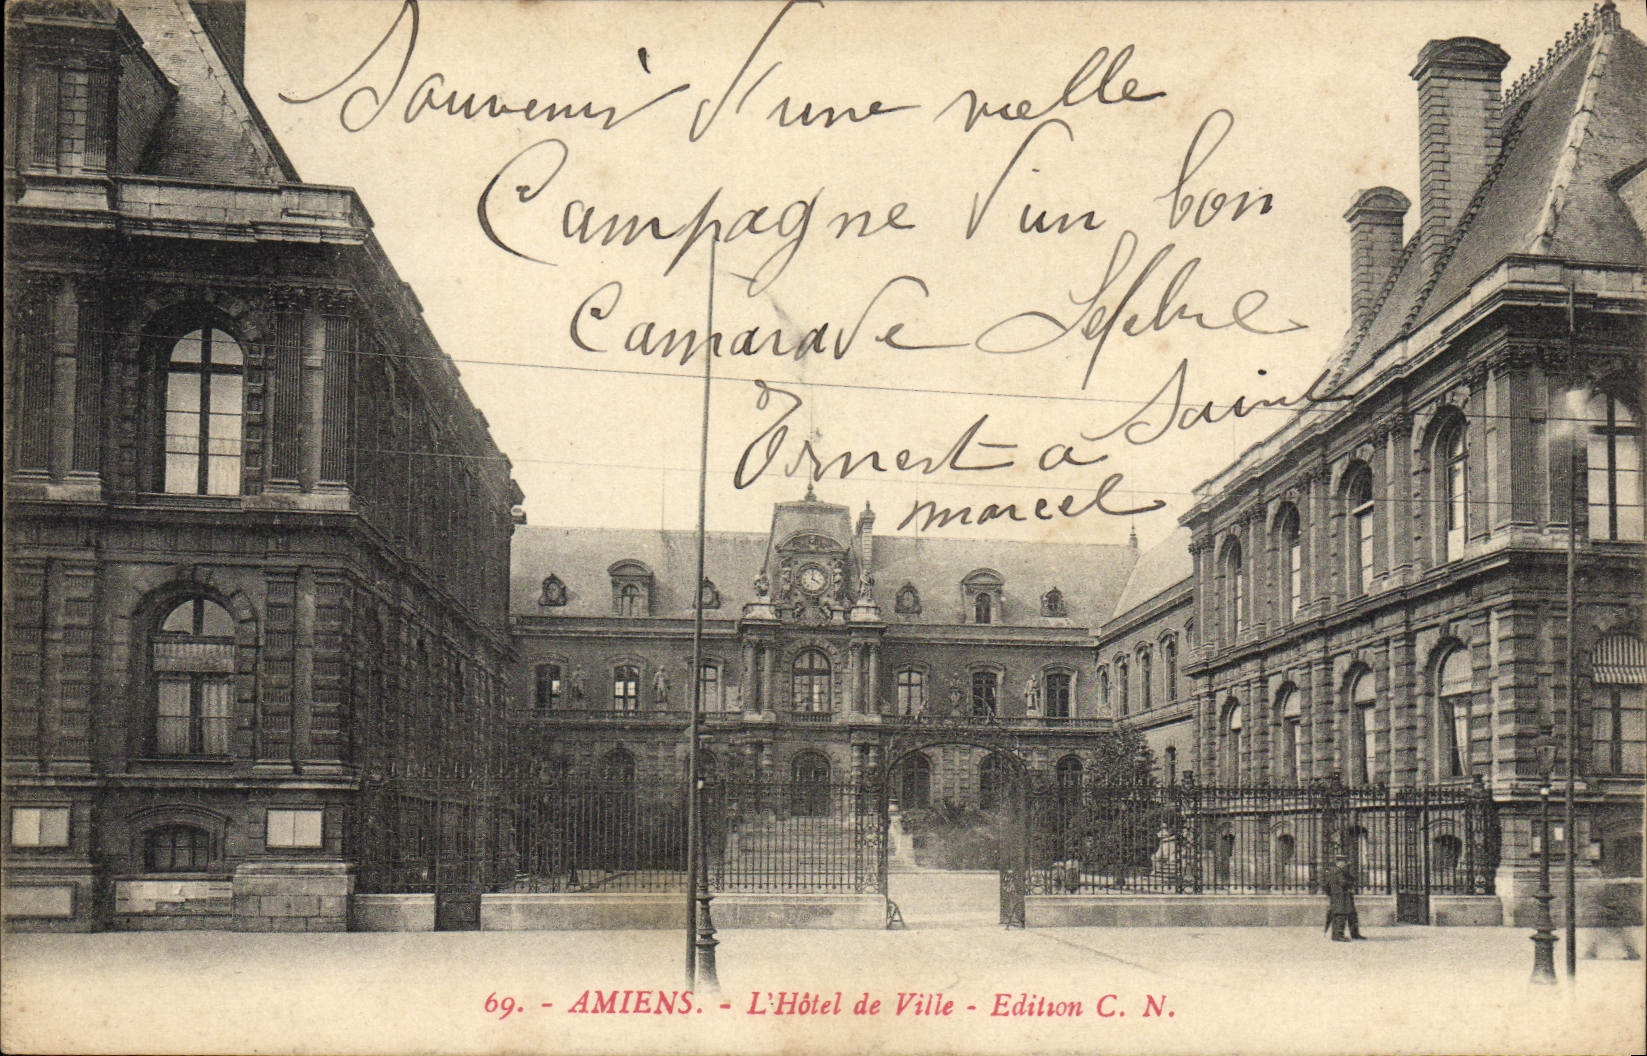 Souvenir d'une vielle
Campagne d'un bon
Camarade Lefebre
Ernest à Saint
marcel
69. - AMIENS. - L'Hôtel de Ville - Edition C. N.